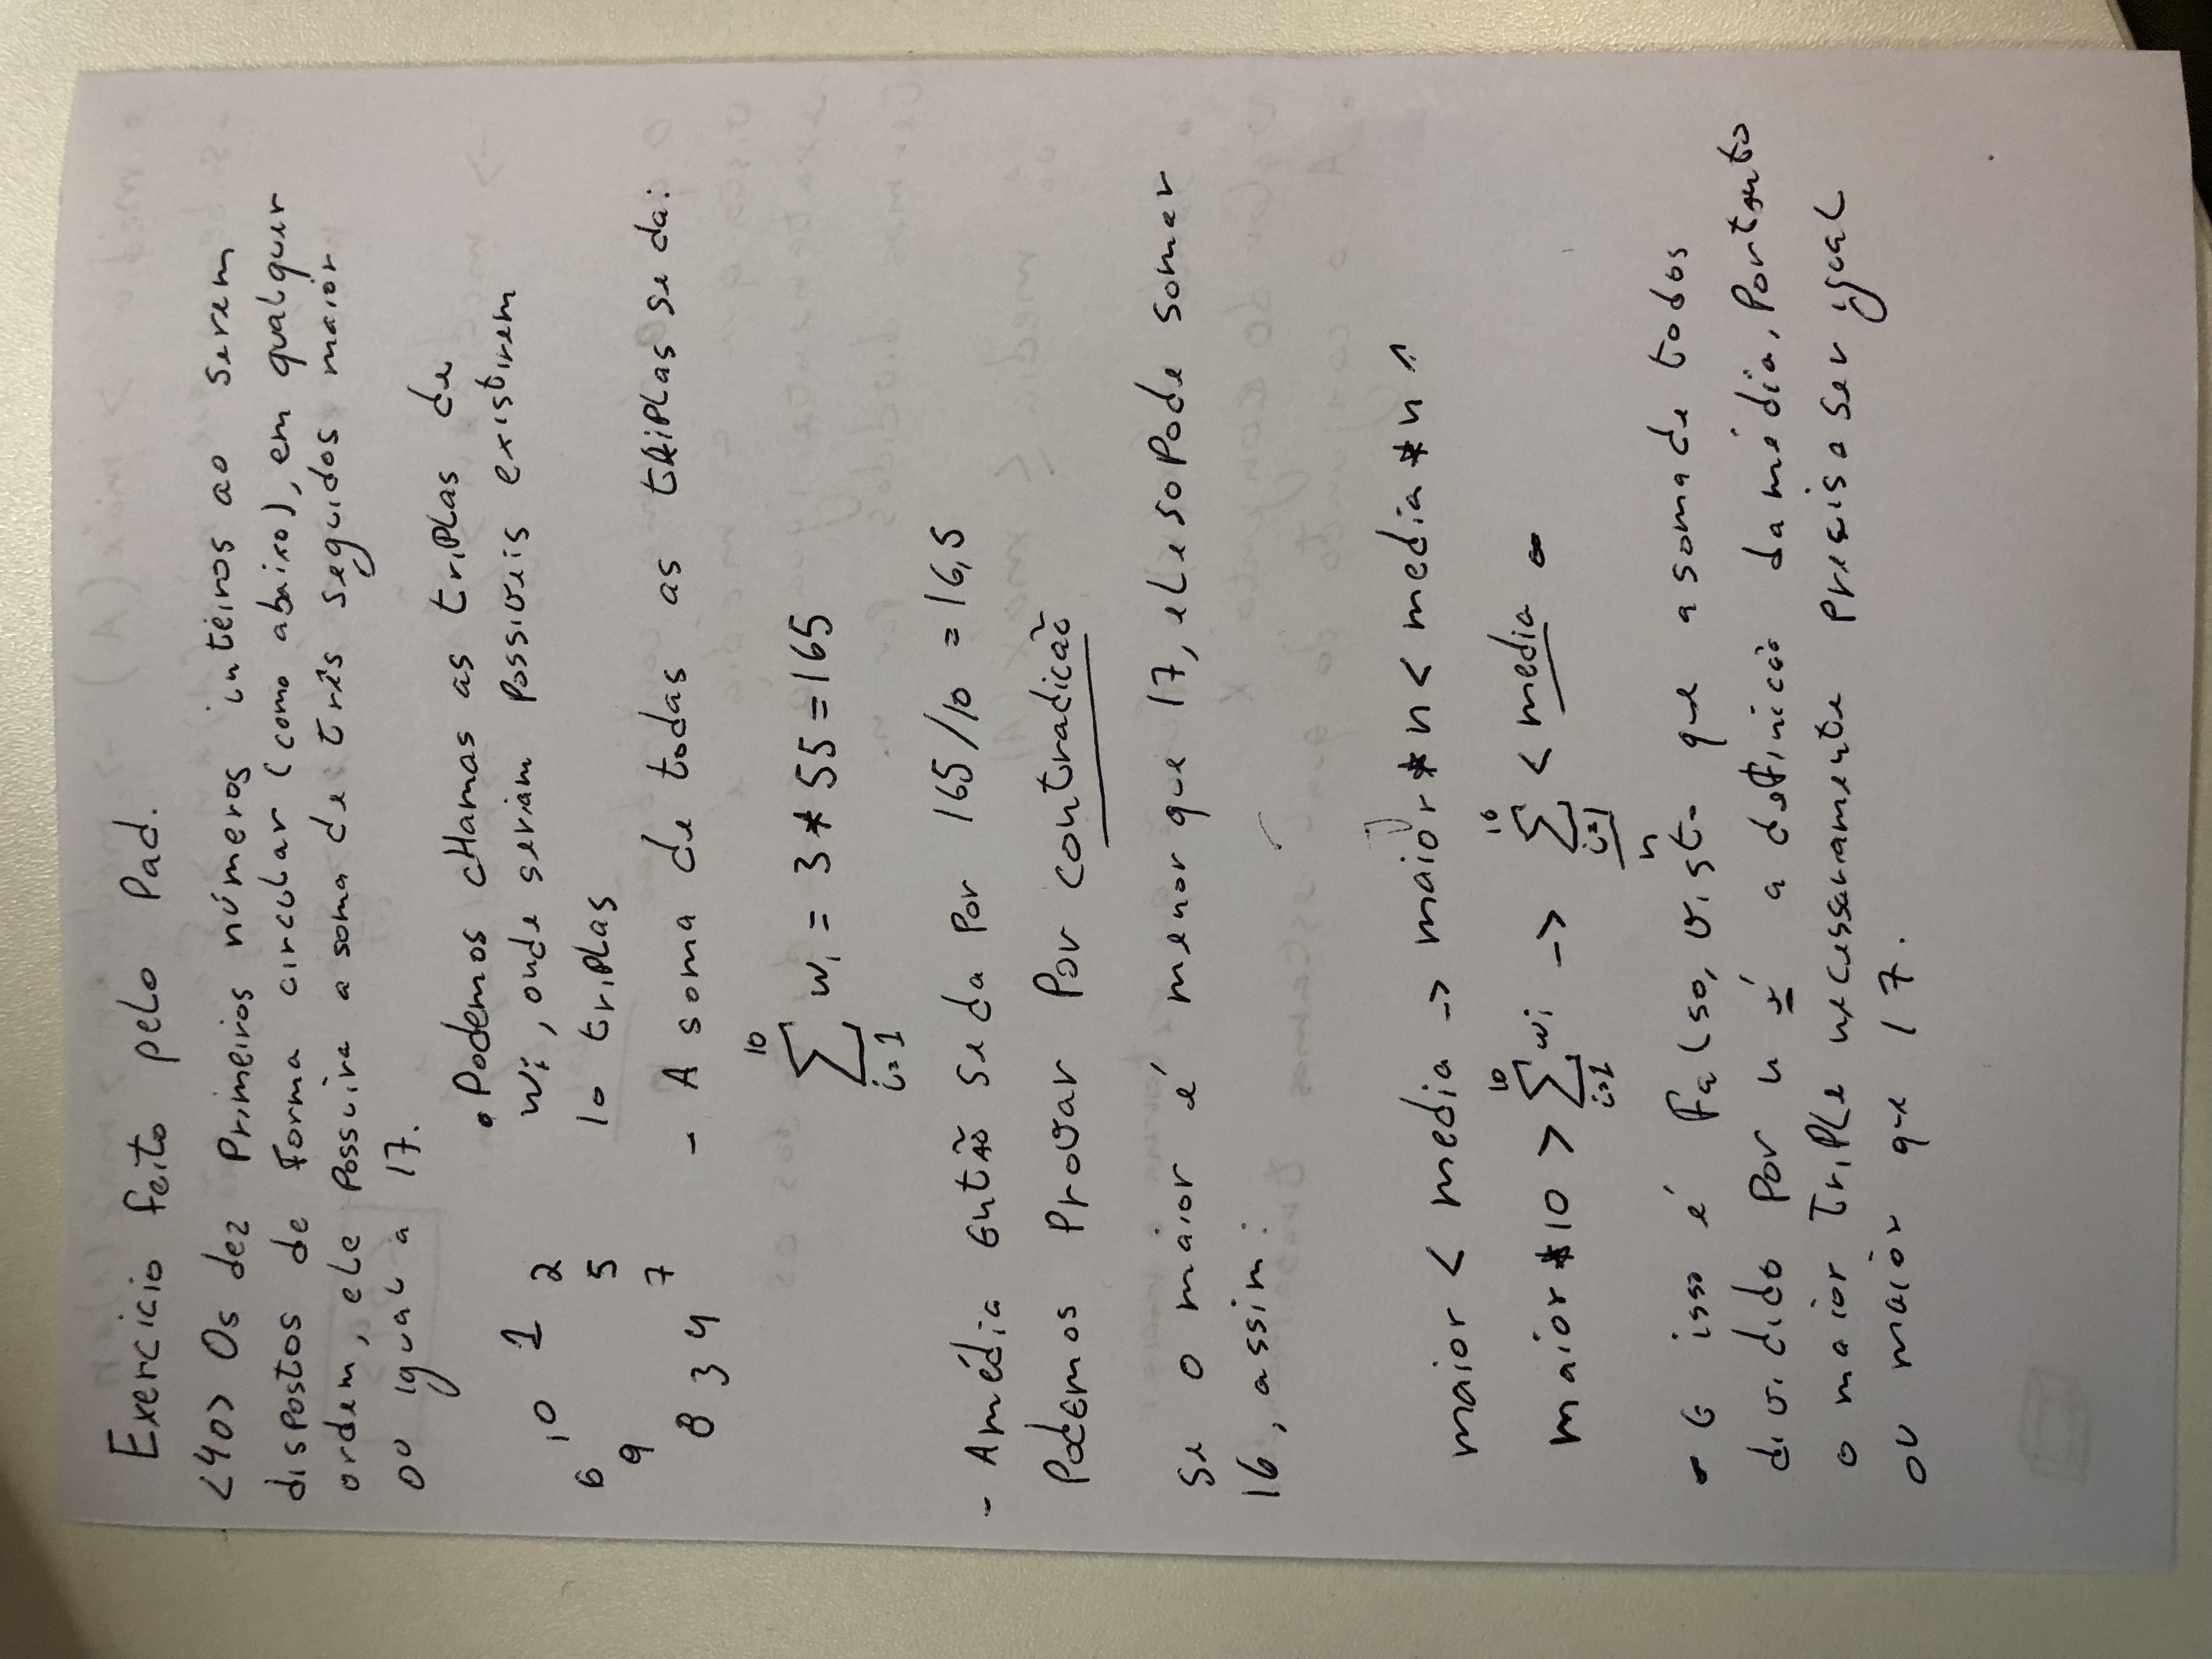 Exercício feito pelo Pad.
<40> Os dez Primeiros números inteiros ao serem
dispostos de forma circular (como abaixo), em qualquer
ordem, ele Possuirá a soma de três seguidos maior
ou igual a 17.
• Podemos cHamas as triPlas de
10 1 2 wi, onde seriam Possiveis existirem
6 5 10 triPlas
9
7
8 3 4 - A soma de todas as triPlas se da:
10
∑ wi = 3 * 55 = 165
i=1
- A média então se da Por 165/10 = 16,5
Podemos Provar Por contradição
Se o maior é menor que 17, ele so Pode somar
16, assim:
maior < media -> maior * n < media * n ^
maior * 10 > 10∑i=1 wi -> 10∑i=1 / n < media
E isso é falso, visto que a soma de todos
dividido Por n é a definicão da média, Portanto
o maior triPle necessariamente Precisa ser igual
ou maior que 17.